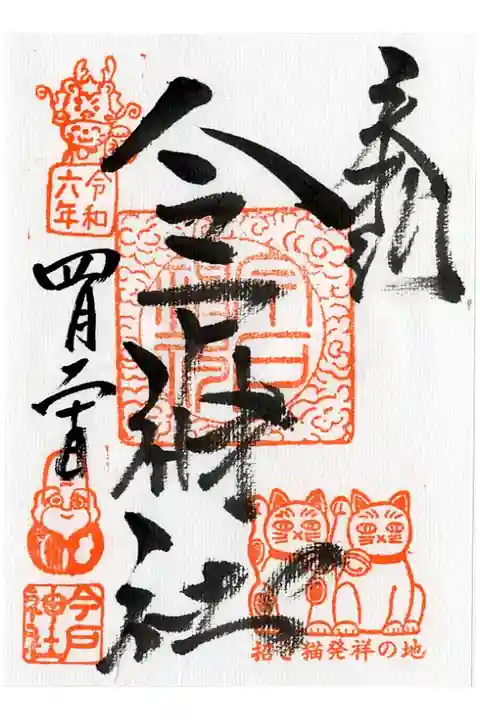 奉拝
今戸神社
今戸神社
令和
六年
四月二十日
今戸神社
招き猫発祥の地